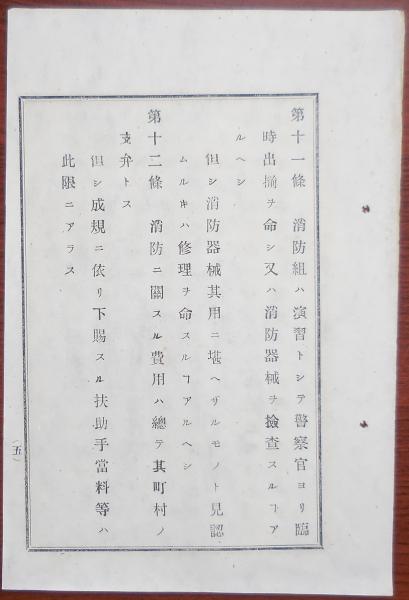 第十一條 消防組ハ演習トシテ警察官ヨリ臨
時出揃ヲ命シ又ハ消防器械ヲ撿查スルヿア
ルヘシ
但シ消防器械其用ニ堪ヘザルモノト見認
ムルキハ修理ヲ命スルヿアルヘシ
第十二條 消防ニ關スル費用ハ總テ其町村ノ
支弁トス
但シ成規ニ依リ下賜スル扶助手當料等ハ
此限ニアラス
(五)